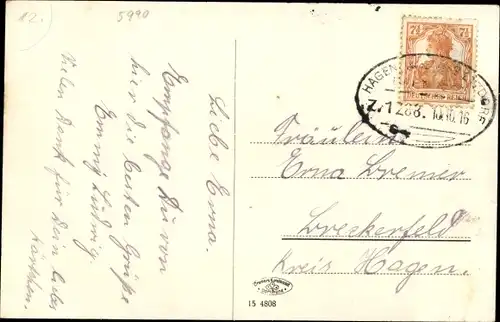 12.
5990
Liebe Erna.
Empfange Du von
hier die besten Grüße
Emmy Ludwig.
Vielen Dank für Dein liebes
Kärtchen.
7½ 7½
HAGEN
Z.1288. 10.10.16
Fräulein
Erna Bremer
Breckerfeld
Kreis Hagen.
15 4808